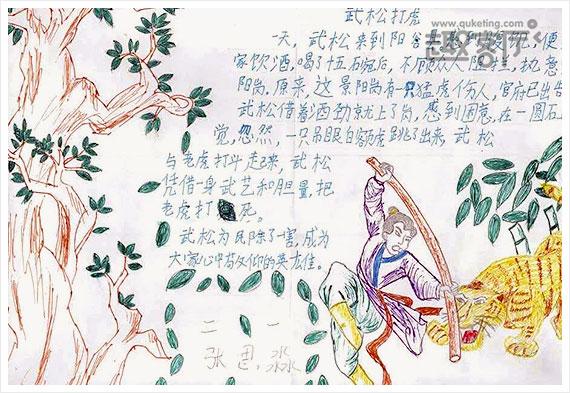 www.quketing.com
武松打虎
一天，武松来到阳谷 感到饥饿，便
家饮酒，喝了十五碗后，不顾众人阻拦，执意
阳岗，原来，这景阳岗有一只猛虎伤人，官府已出告
武松借着酒劲就上了岗，感到困意，在一圆石
觉，忽然，一只吊眼白额虎跳了出来，武松
与老虎打斗起来，武松
凭借一身武艺和胆量，把
老虎打死。
武松为民除了一害，成为
大家心中敬仰的英雄。
二 一
张 淼